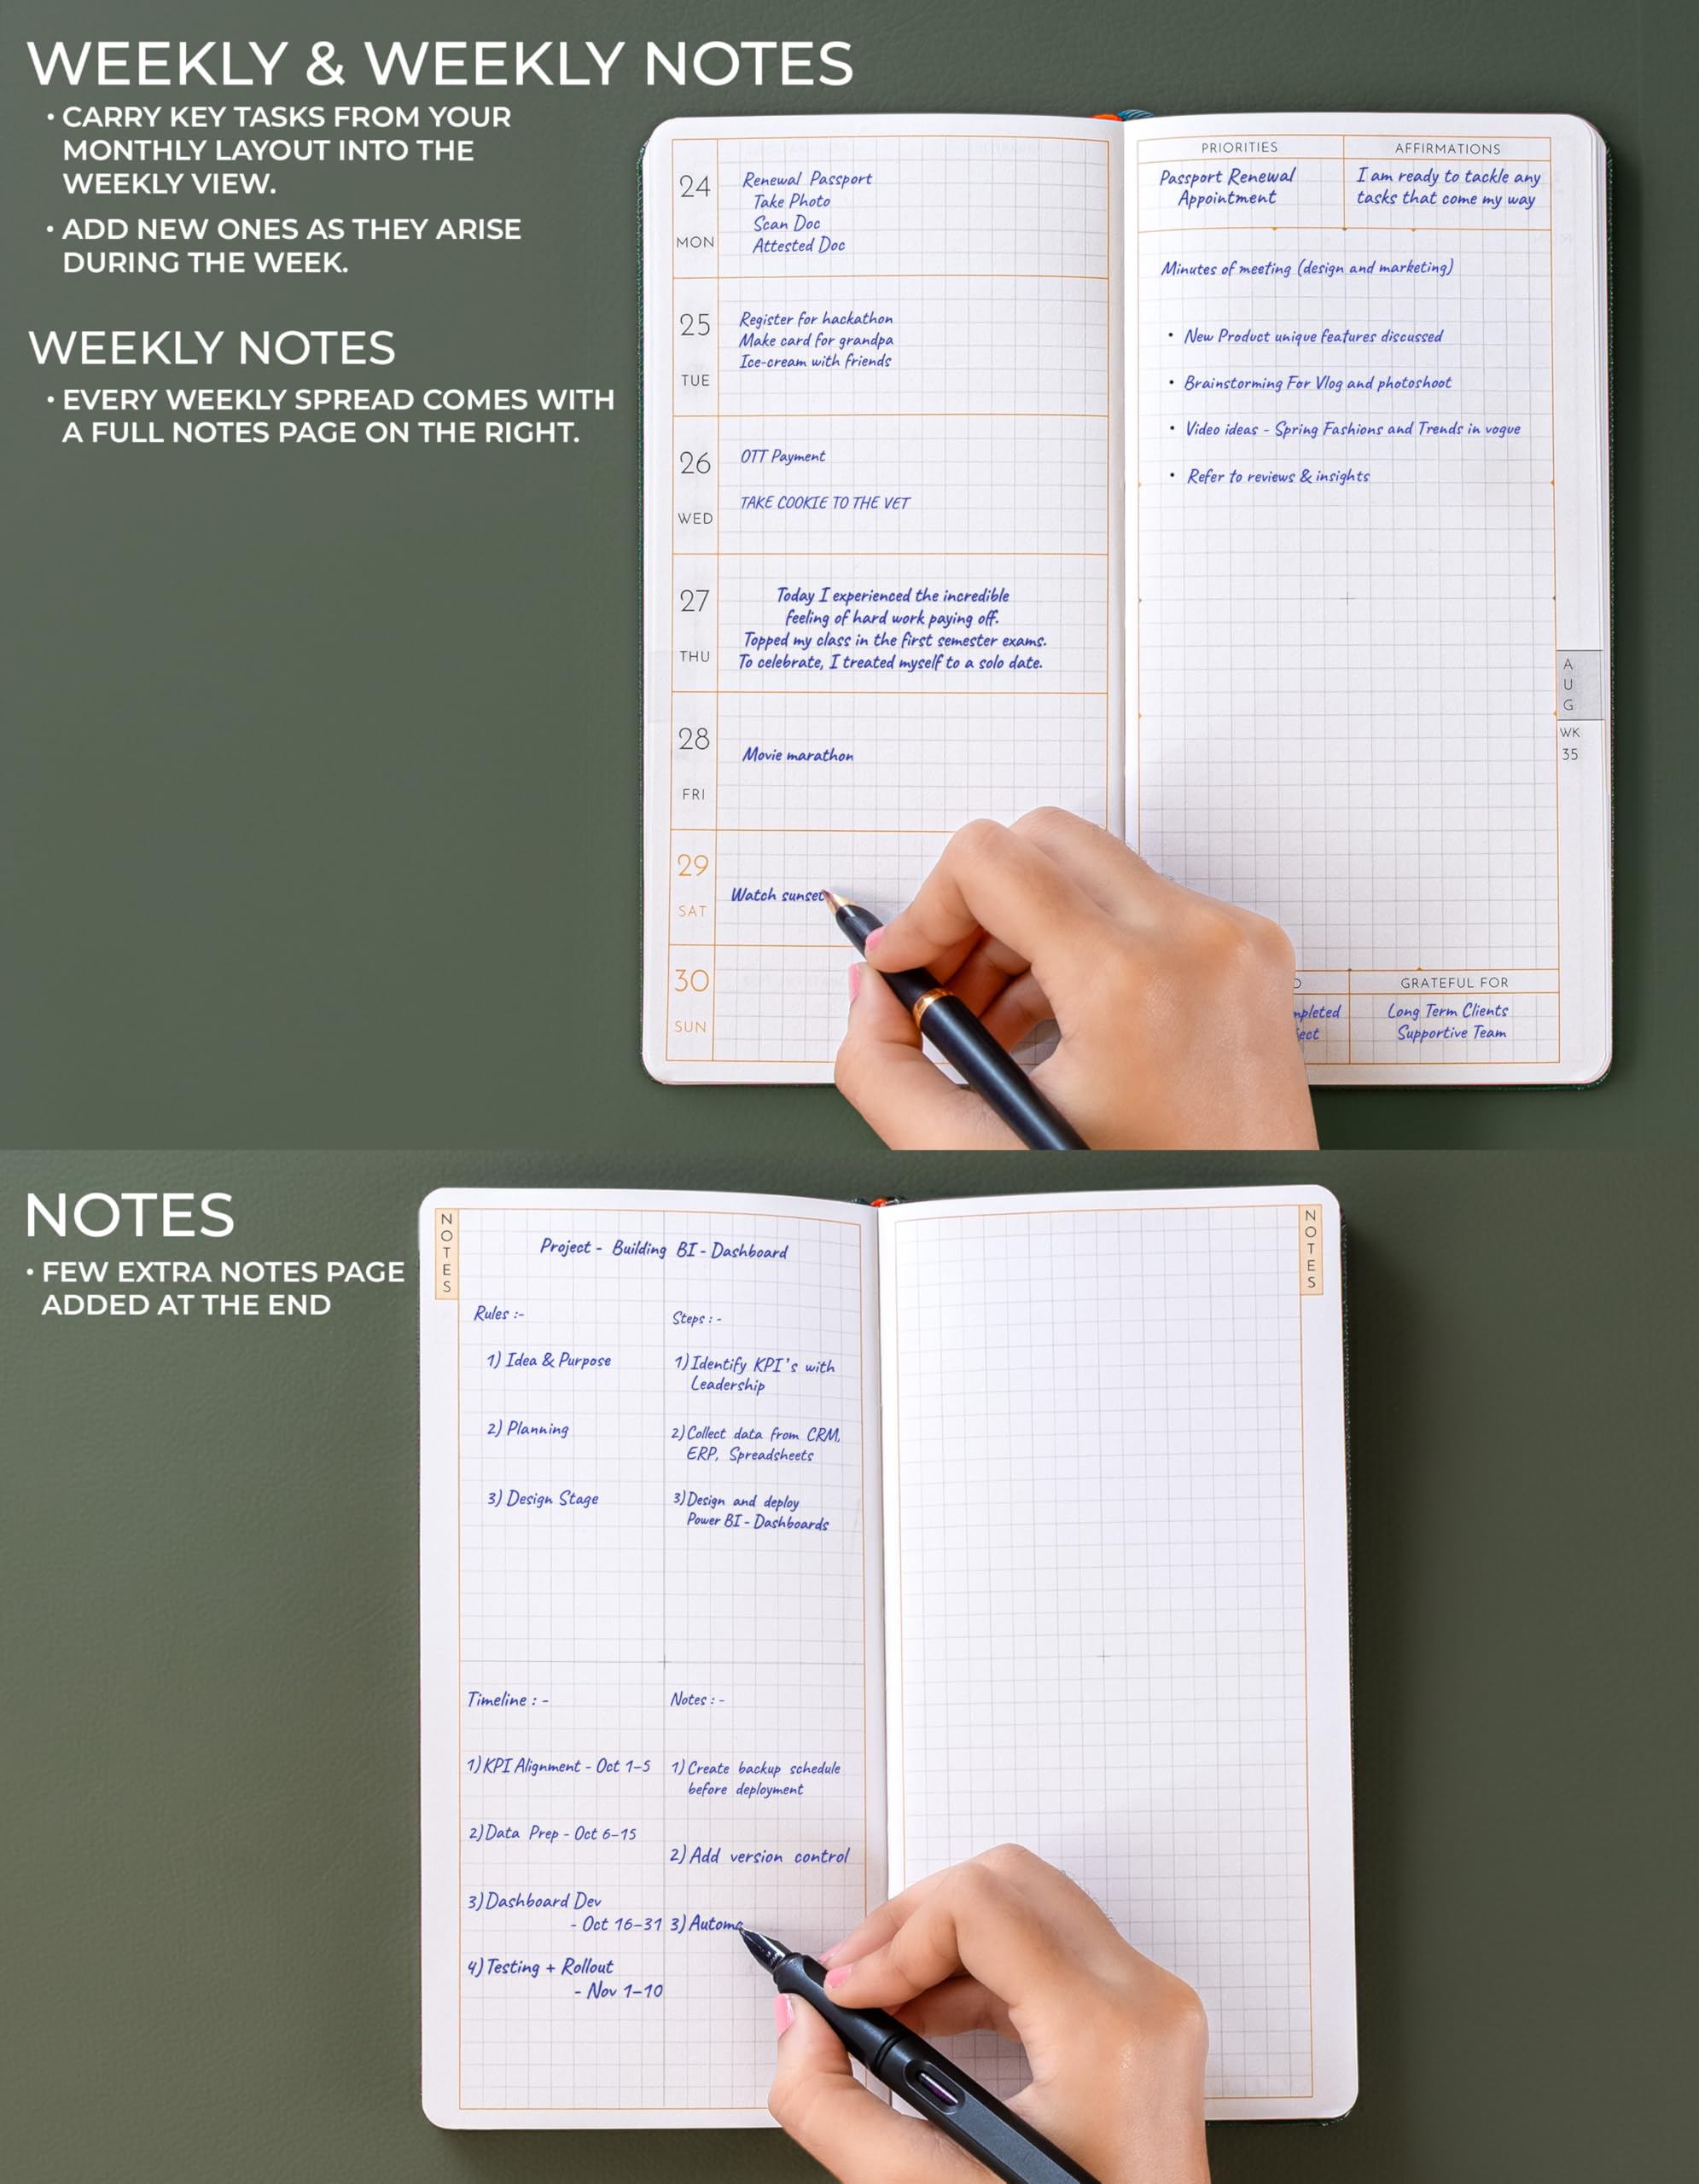 WEEKLY & WEEKLY NOTES
• CARRY KEY TASKS FROM YOUR
MONTHLY LAYOUT INTO THE
WEEKLY VIEW.
• ADD NEW ONES AS THEY ARISE
DURING THE WEEK.
WEEKLY NOTES
• EVERY WEEKLY SPREAD COMES WITH
A FULL NOTES PAGE ON THE RIGHT.
24
MON
Renewal Passport
Take Photo
Scan Doc
Attested Doc
25
TUE
Register for hackathon
Make card for grandpa
Ice-cream with friends
26
WED
OTT Payment
TAKE COOKIE TO THE VET
27
THU
Today I experienced the incredible
feeling of hard work paying off.
Topped my class in the first semester exams.
To celebrate, I treated myself to a solo date.
28
FRI
Movie marathon
29
SAT
Watch sunset
30
SUN
PRIORITIES
Passport Renewal
Appointment
AFFIRMATIONS
I am ready to tackle any
tasks that come my way
Minutes of meeting (design and marketing)
• New Product unique features discussed
• Brainstorming For Vlog and photoshoot
• Video ideas - Spring Fashions and Trends in vogue
• Refer to reviews & insights
AUG
WK
35
GRATEFUL FOR
Long Term Clients
Supportive Team
NOTES
• FEW EXTRA NOTES PAGE
ADDED AT THE END
NOTES
Project - Building BI - Dashboard
Rules :-
1) Idea & Purpose
2) Planning
3) Design Stage
Steps : -
1) Identify KPI's with
Leadership
2) Collect data from CRM,
ERP, Spreadsheets
3) Design and deploy
Power BI - Dashboards
Timeline : -
1) KPI Alignment - Oct 1-5
2) Data Prep - Oct 6-15
3) Dashboard Dev
- Oct 16-31
4) Testing + Rollout
- Nov 1-10
Notes : -
1) Create backup schedule
before deployment
2) Add version control
3) Automa
NOTES